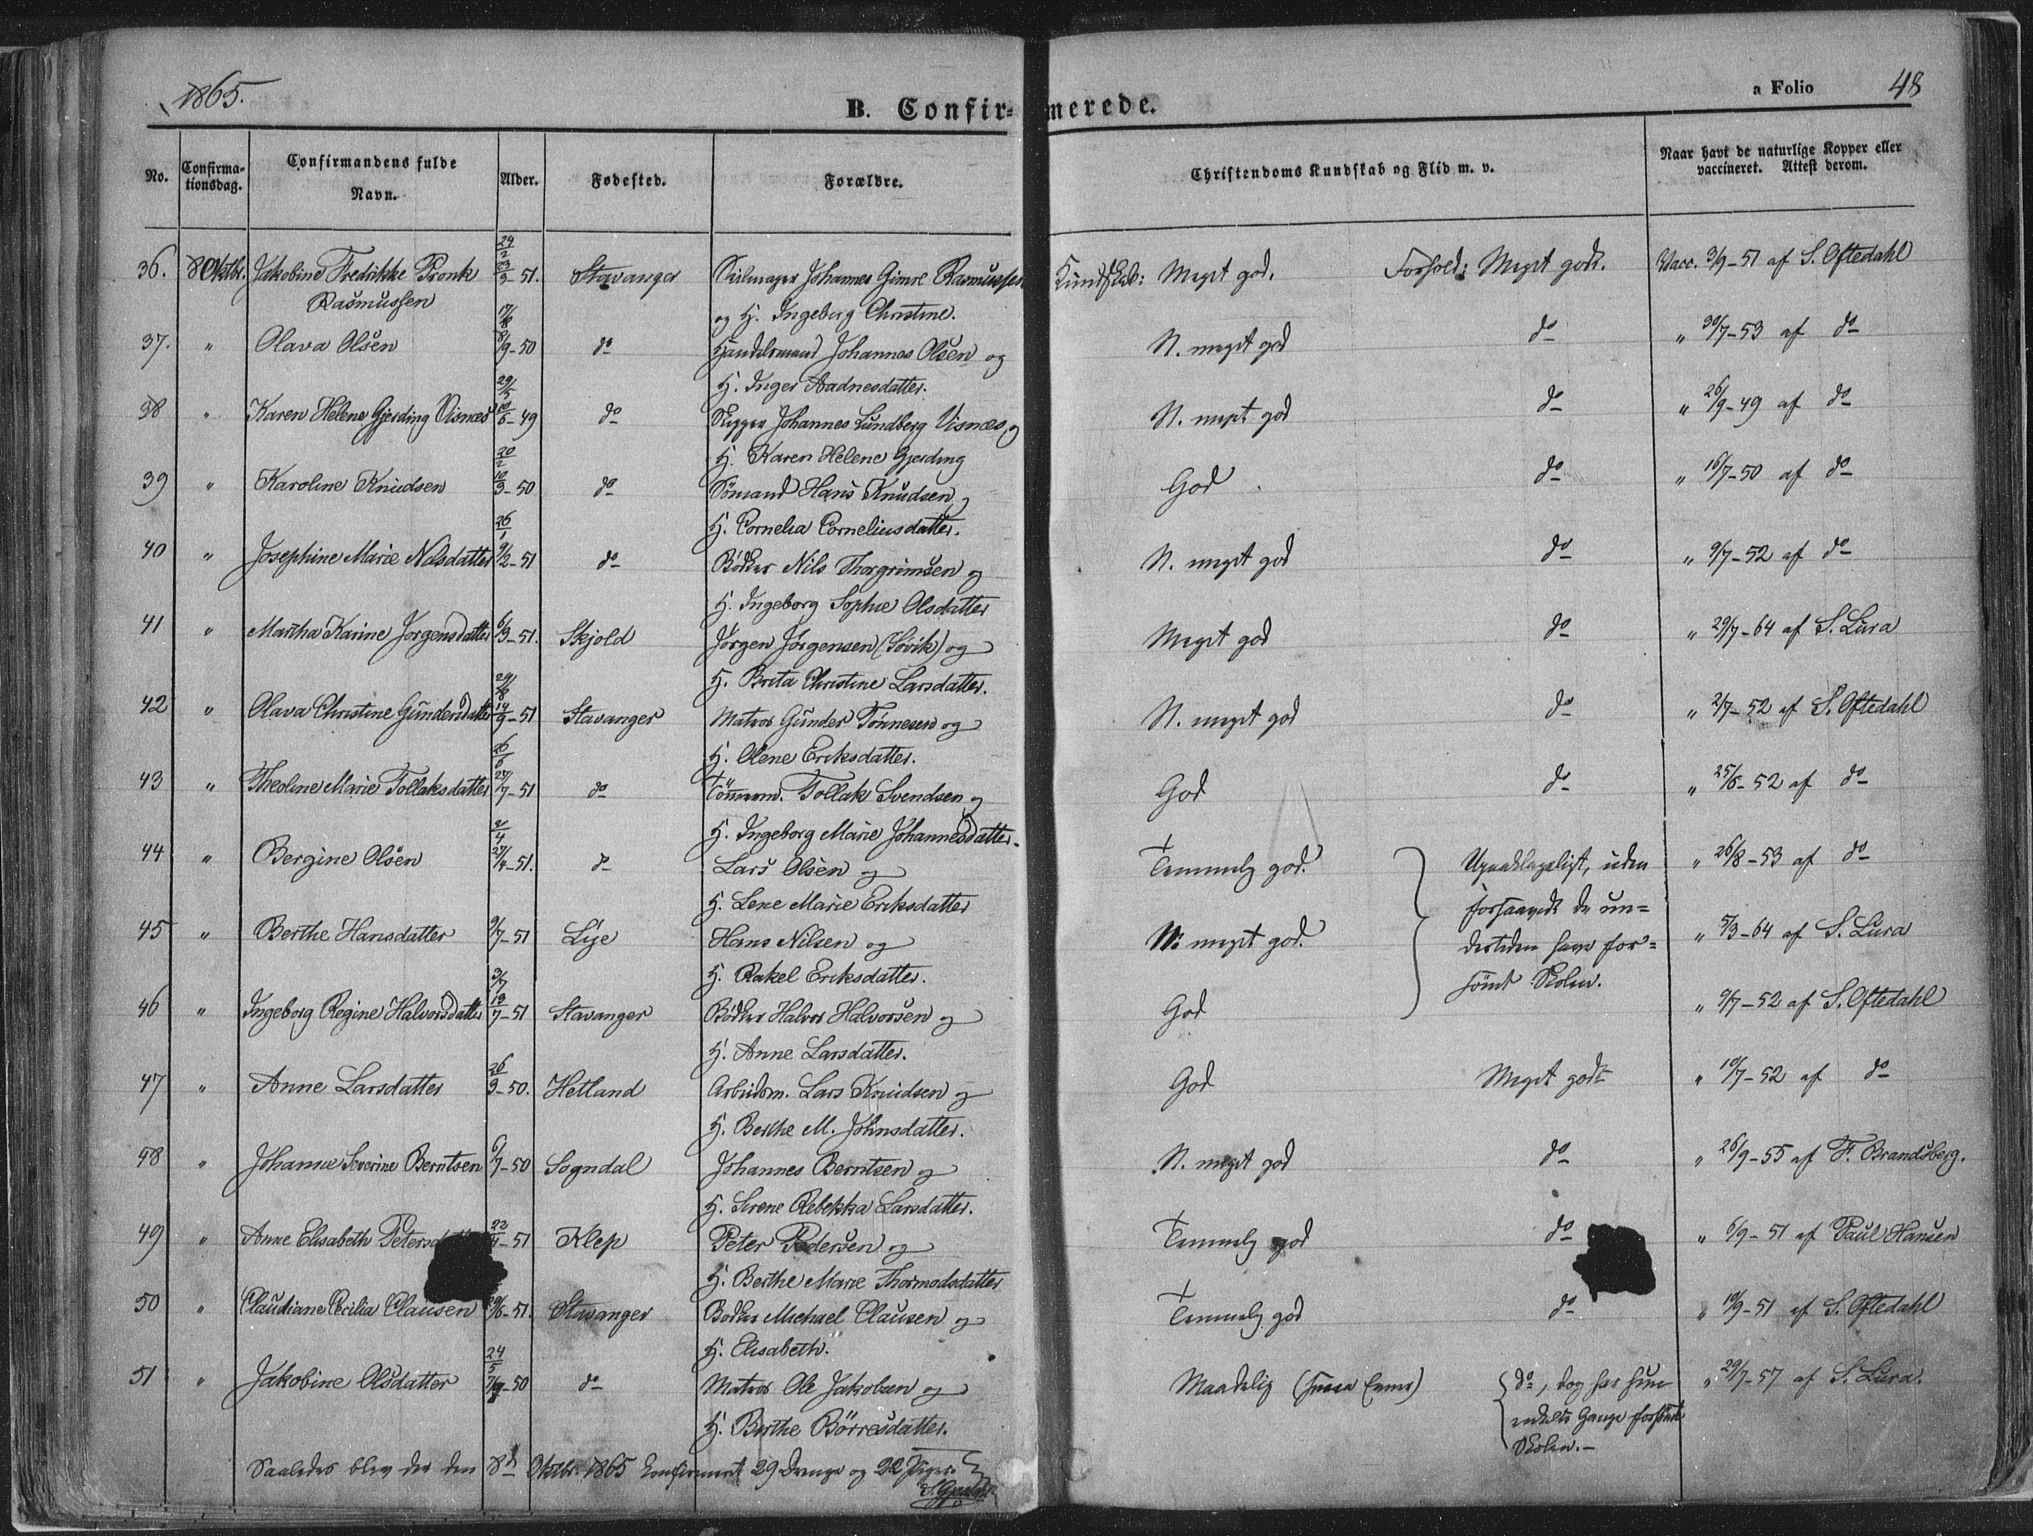 1865.
B. Confirmerede.
a Folio 48
No. Confirmationsdag. Confirmandens fulde Navn. Alder. Fødested. Forældre. Christendoms Kundskab og Flid m. v. Naar havt de naturlige Kopper eller vaccineret. Attest derom.
36. 8 Oktbr. Jakobine Fredrikke Pronk 24/2 23/3-51. Stavanger Seilmager Johannes Gimre Rasmussen Kundskab: Meget god. Forhold: Meget godt. Vacc. 3/9-51 af S. Oftedahl
Rasmussen og H. Ingeborg Christine.
37. " Olava Olsen 17/8 8/9-50 do Handelsmand Johannes Olsen og N. meget god do " 30/7-53 af do
H. Inger Aadnesdatter.
38 " Karen Helene Gjerding Visnæs 29/5 20/6-49 do Skipper Johannes Lundberg Visnæs og N. meget god do " 26/9-49 af do
H. Karen Helene Gjerding
39 " Karoline Knudsen 20/2 10/3-50 do Sömand Hans Knudsen og God do " 16/7-50 af do
H. Cornelia Corneliusdatter.
40 " Josephine Marie Nilsdatter 26/1 9/2-51 do Bødker Nils Thorgrimsen og N. meget god do " 9/7-52 af do
H. Ingeborg Sophie Olsdatter
41 " Martha Karine Jørgensdatter 6/3-51. Skjold Jørgen Jørgensen (Søvik) og Meget god do " 29/7-64 af S. Lura
H. Brita Christine Larsdatter.
42 " Olava Christine Gundersdatter 24/8 14/9-51 Stavanger Matros Gunder Tønnesen og N. meget god do " 2/7-52 af S. Oftedahl
H. Olene Eriksdatter.
43 " Theoline Marie Tollaksdatter 26/6 27/7-51 do Tömmerm. Tollak Svendsen og God do " 25/6-52 af do
H. Ingeborg Marie Johannesdatter.
44 " Bergine Olsen 2/4 27/4-51. do Lars Olsen og Temmelig god. Upaaklageligt, uden " 26/8-53 af do
H. Lene Marie Eriksdatter forsaavidt de un=
45 " Berthe Hansdatter 9/7-51 Lye Hans Nilsen og N. meget god. dertiden have for= " 5/3-64 af S. Lura
H. Rakel Eriksdatter. sömt Skolen.
46 " Ingeborg Regine Halvorsdatter 3/7 19/7-51 Stavanger Bødker Halvor Halvorsen og God " 9/7-52 af S. Oftedahl
H. Anne Larsdatter.
47 " Anne Larsdatter 26/3-50. Hetland Arbeidsm. Lars Knudsen og God Meget godt " 10/7-52 af do
H. Berthe M. Johnsdatter.
48 " Johanne Severine Berntsen 6/7-50 Sogndal Johannes Berntsen og N. meget god do " 26/9-55 af F. Brandsberg.
H. Serene Rebekka Larsdatter.
49 " Anne Elisabeth 22/4-51 Klep Peter Pedersen og Temmelig god do " 6/9-51 af Paul Hansen
H. Berthe Marie Thormodsdatter
50 " Claudiane Cecilia Clausen 29/6-51. Stavanger Bødker Michael Clausen og Temmelig god do " 19/9-51 af S. Oftedahl
H. Elisabeth.
51 " Jakobine Olsdatter 24/5 -50 do Matros Ole Jakobsen og Maadelig (svage Evner) do, dog har hun " 29/7-57 af S. Lura.
H. Berthe Börresdatter. enkelte Gange forsömt
Skolen.-
Saaledes blev der den 8de Oktbr. 1865 konfirmeret 29 Drenge og 22 Piger.